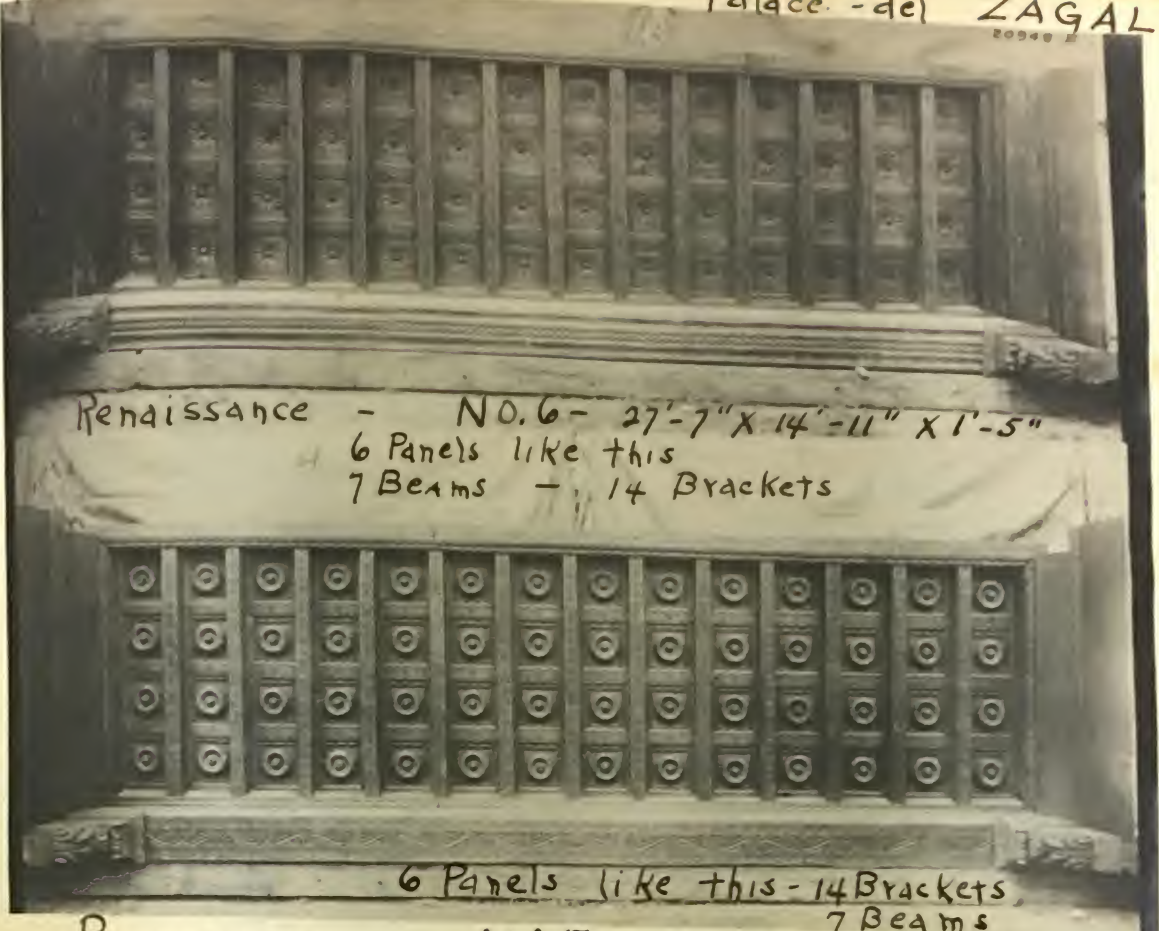 Palace. - del ZAGAL
Renaissance - NO. 6 - 27'-7" X 14'-11" X 1'-5"
6 Panels like this
7 Beams - 14 Brackets
6 Panels like this - 14 Brackets
7 Beams